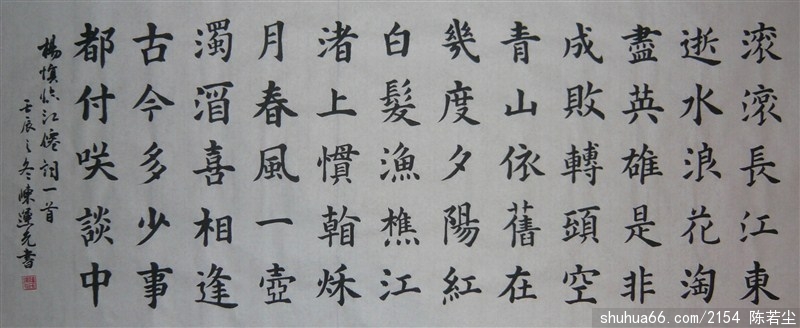 滾滾長江東
逝水浪花淘
盡英雄是非
成敗轉頭空
青山依舊在
幾度夕陽紅
白髮漁樵江
渚上慣看秌
月春風一壺
濁酒喜相逢
古今多少事
都付咲談中
楊慎臨江僊詞一首
壬辰之冬陳運光書
shuhua66.com/2154 陈若尘